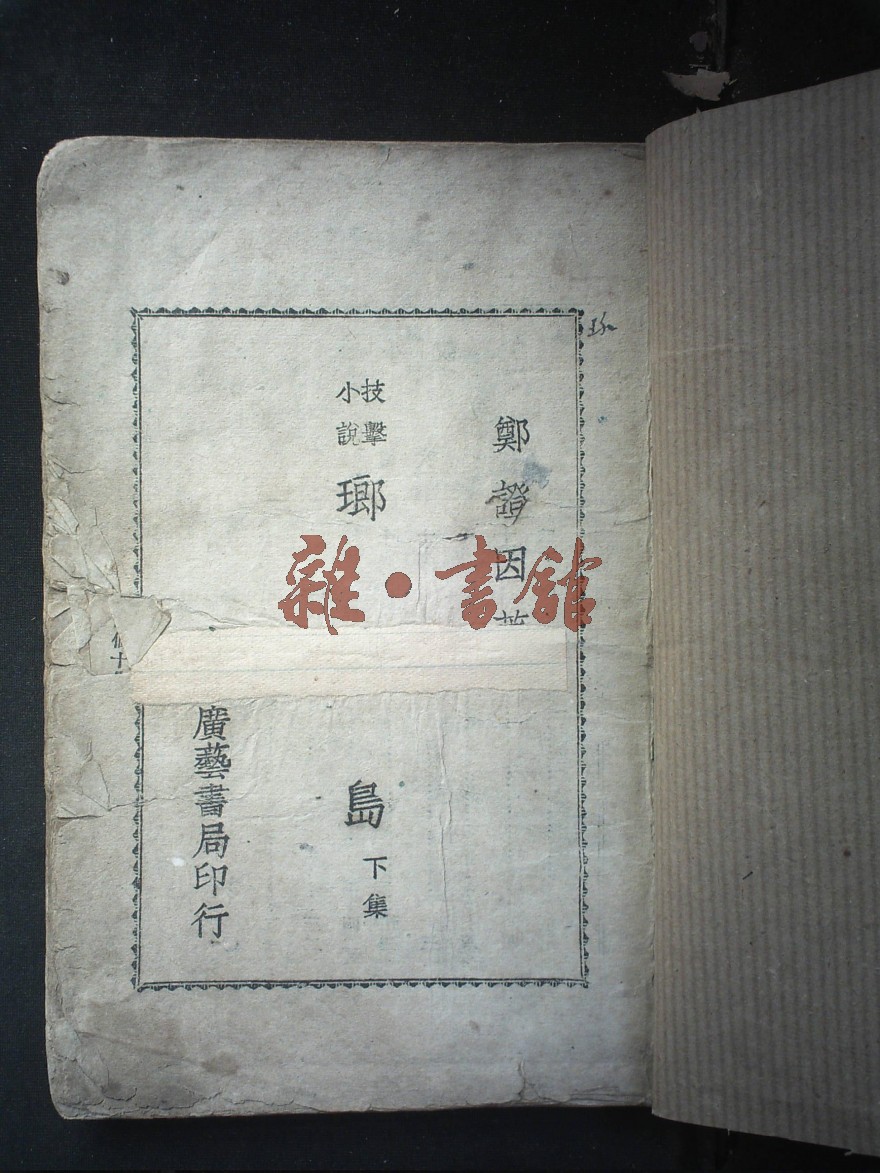 鄭證因著
技擊
小說
瑯
島
下集
廣藝書局印行
雜·書館